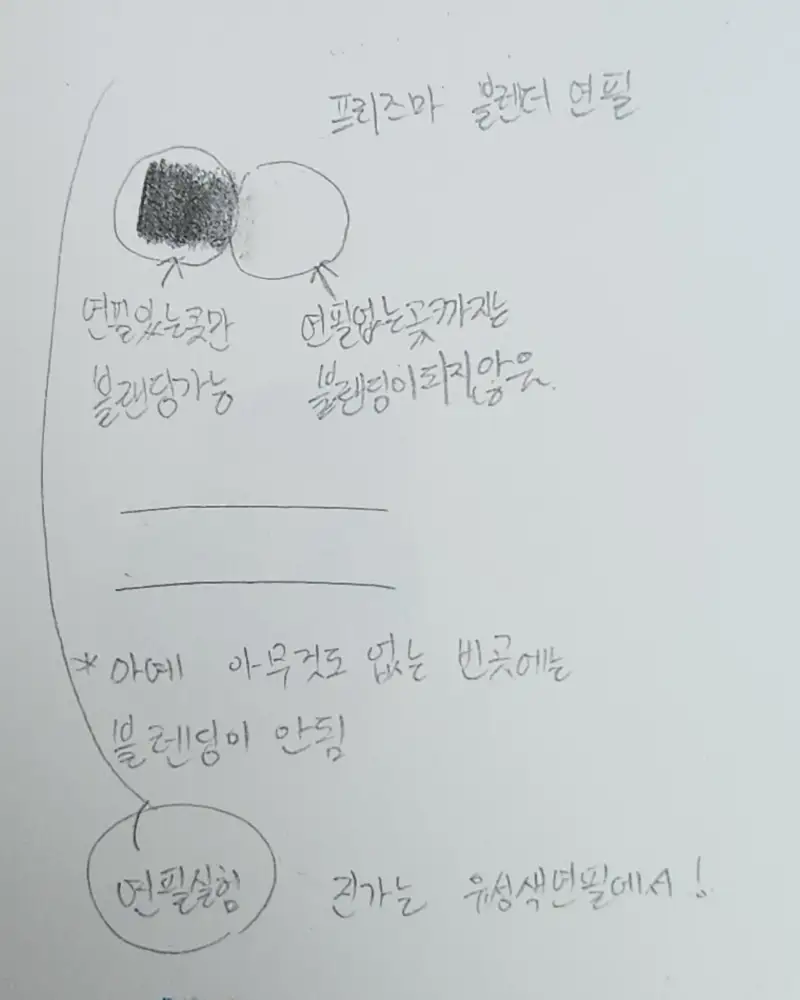 프리즈마 블렌더 연필
연필있는곳만
블랜딩가능
연필없는곳까지는
블랜딩이되지않음.
* 아예 아무것도 없는 빈곳에는
블렌딩이 안됨
연필실험
진가는 유성색연필에서!